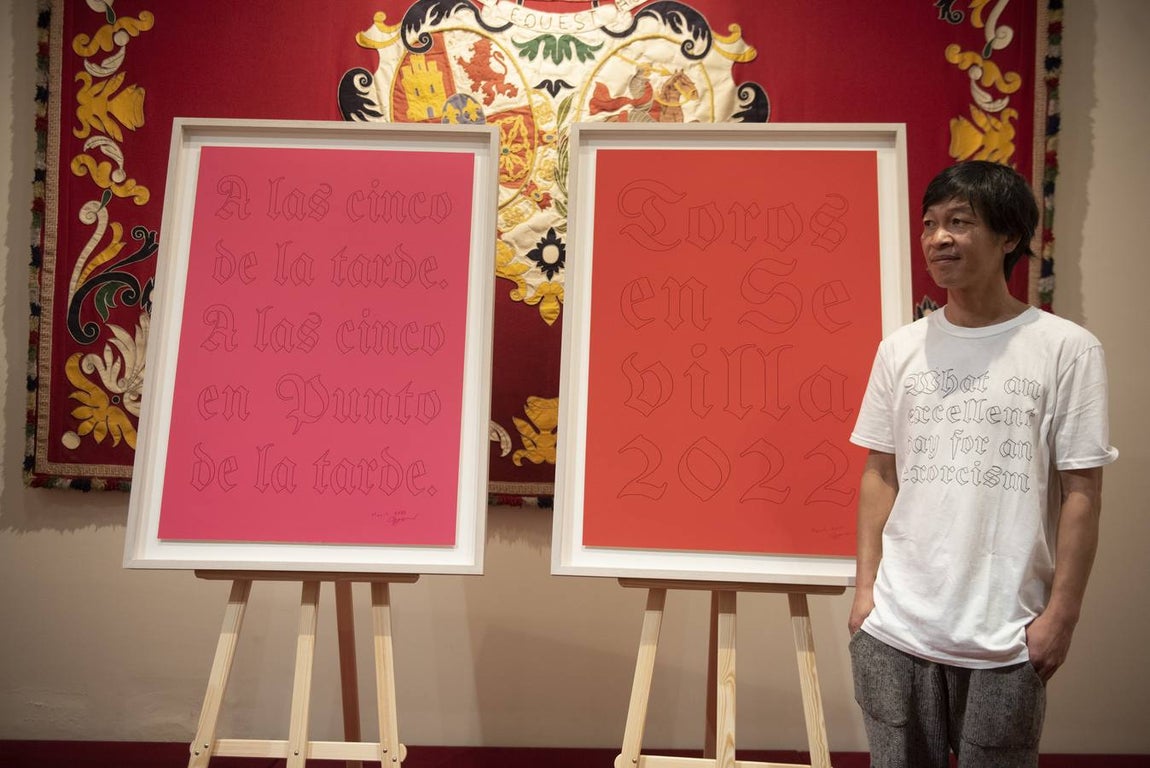 EQUEST
A las cinco
de la tarde.
A las cinco
en Punto
de la tarde.
Toros
en Se
villa
2022
What an
excellent
day for an
exorcism